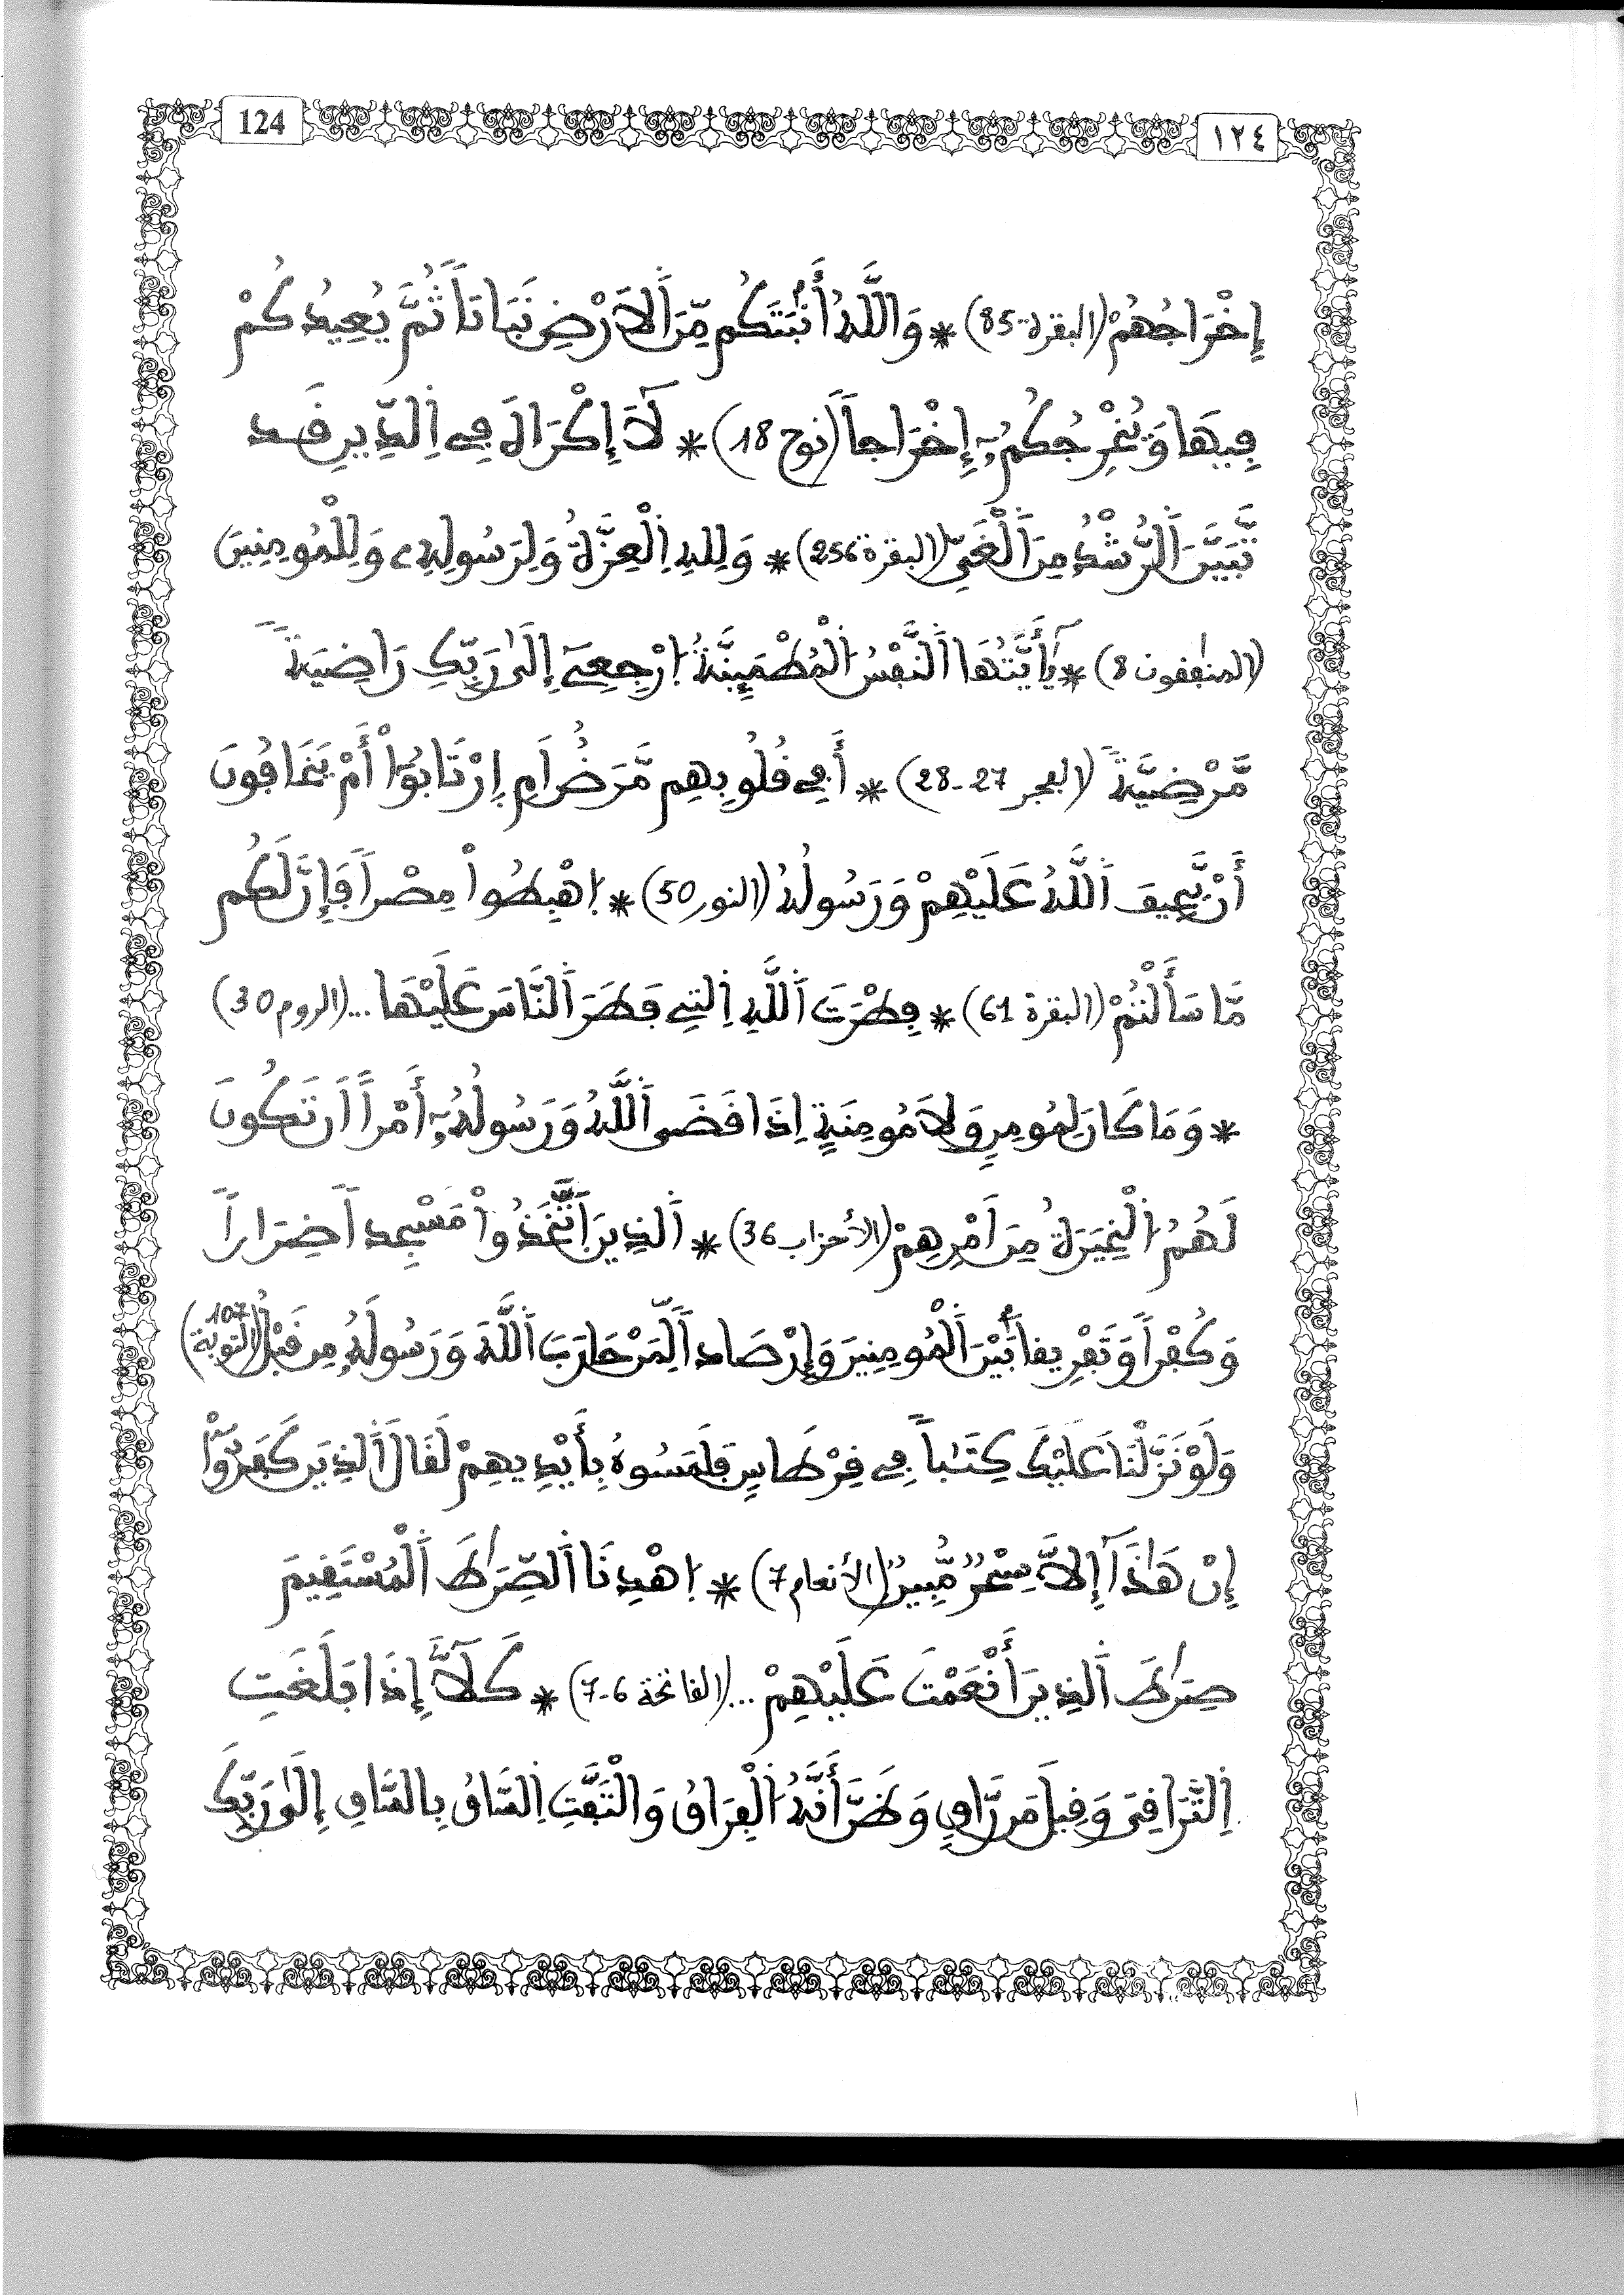 124
١٢٤
إِخْرَاجُهُمْ (البقرة 85) * وَاللَّهُ أَنۢبَتَكُم مِّنَ اَلَارْضِ نَبَاتاً ثُمَّ يُعِيدُكُمْ
فِيهَا وَيُخْرِجُكُمُۥٓ إِخْرَاجاً (نوح 18) * لَآ إِكْرَاهَ فِے اِلدِّينِ قَد
تَّبَيَّنَ اَلرُّشْدُ مِنَ اَلْغَيِّ (البقرة 256) * وَلِلهِ اِلْعِزَّةُ وَلِرَسُولِهِۦ وَلِلْمُومِنِينَ
(المنٰفقون 8) * يَٰٓأَيَّتُهَا اَلنَّفْسُ اُلْمُطْمَئِنَّةُ اُ۪رْجِعِےٓ إِلَىٰ رَبِّكِ رَاضِيَةً
مَّرْضِيَّةً (الفجر 27-28) * أَفِے قُلُوبِهِم مَّرَضٌ اَمِ اِرْتَابُوٓاْ أَمْ يَخَافُونَ
أَنْ يَّحِيفَ اَللَّهُ عَلَيْهِمْ وَرَسُولُهُ (النور 50) * اِ۪هْبِطُواْ مِصْراً فَإِنَّ لَكُم
مَّا سَأَلْتُمْ (البقرة 61) * فِطْرَتَ اَللَّهِ اِلتِے فَطَرَ اَلنَّاسَ عَلَيْهَا ... (الروم 30)
* وَمَا كَانَ لِمُومِنٍ وَلَا مُومِنَةٍ اِذَا قَضَى اَللَّهُ وَرَسُولُهُۥٓ أَمْراً اَن تَكُونَ
لَهُمُ اُلْخِيَرَةُ مِنَ اَمْرِهِمْ (الأحزاب 36) * اَلذِينَ اَتَّخَذُواْ مَسْجِداً ضِرَاراً
وَكُفْراً وَتَفْرِيقاً بَيْنَ اَلْمُومِنِينَ وَإِرْصَاداً لِّمَنْ حَارَبَ اَللَّهَ وَرَسُولَهُۥ مِن قَبْلُ (التوبة 107)
وَلَوْ نَزَّلْنَا عَلَيْكَ كِتَٰباً فِے قِرْطَاسٍ فَلَمَسُوهُ بِأَيْدِيهِمْ لَقَالَ اَلذِينَ كَفَرُوٓاْ
إِنْ هَٰذَآ إِلَّا سِحْرٌ مُّبِينٌ (الأنعام 7) * اِ۪هْدِنَا اَلصِّرَٰطَ اَلْمُسْتَقِيمَ
صِرَٰطَ اَلذِينَ أَنْعَمْتَ عَلَيْهِمْ ... (الفاتحة 6-7) * كَلَّآ إِذَا بَلَغَتِ
اِلتَّرَاقِىَ وَقِيلَ مَن رَّاقٍ وَظَنَّ أَنَّهُ اُلْفِرَاقُ وَالْتَفَّتِ اِلسَّاقُ بِالسَّاقِ إِلَىٰ رَبِّكَ